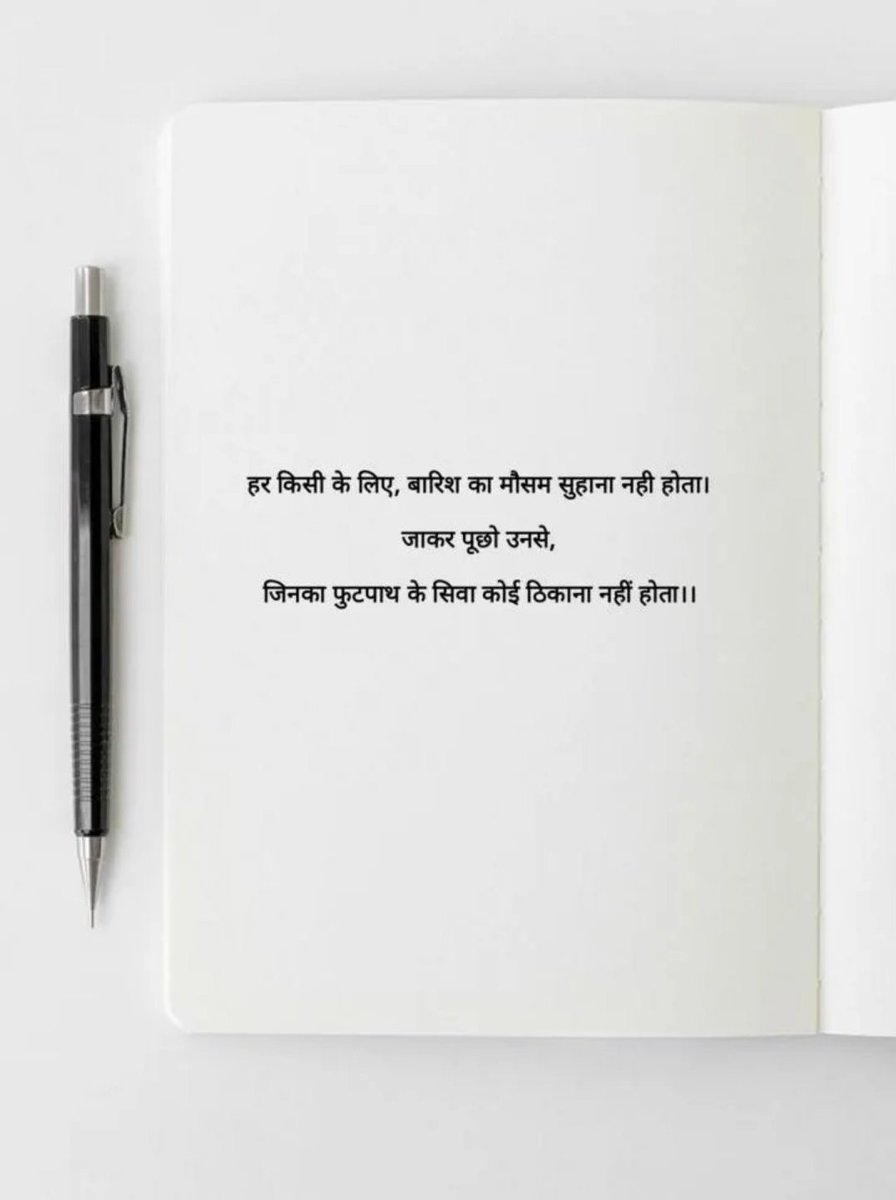 हर किसी के लिए, बारिश का मौसम सुहाना नही होता।
जाकर पूछो उनसे,
जिनका फुटपाथ के सिवा कोई ठिकाना नहीं होता।।